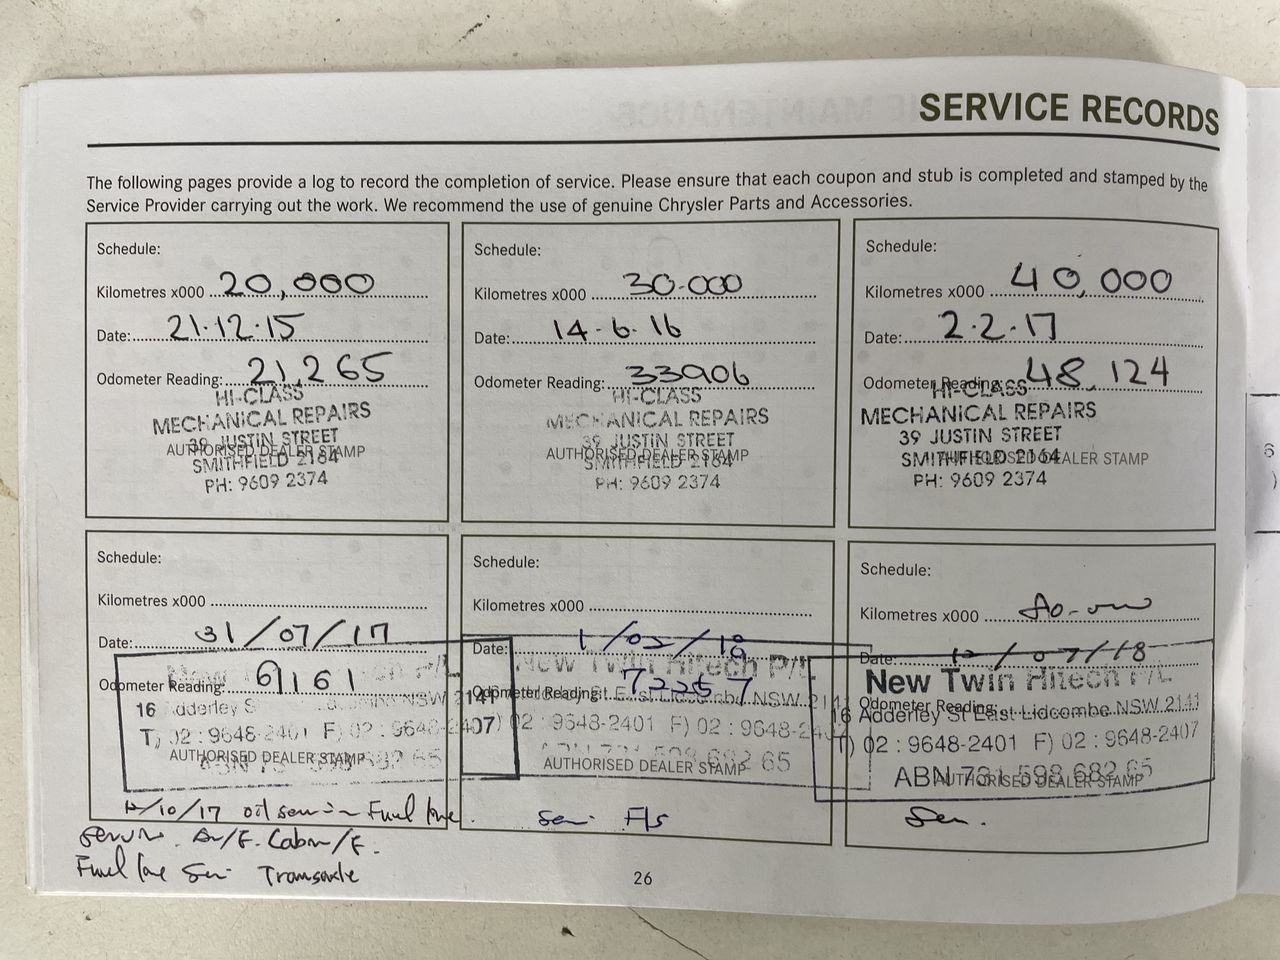 SERVICE RECORDS
The following pages provide a log to record the completion of service. Please ensure that each coupon and stub is completed and stamped by the
Service Provider carrying out the work. We recommend the use of genuine Chrysler Parts and Accessories.
Schedule:
Kilometres x000 20,000
Date: 21.12.15
Odometer Reading: 21,265
HI-CLASS
MECHANICAL REPAIRS
39 JUSTIN STREET
AUTHORISED DEALER STAMP
SMITHFIELD 2164
PH: 9609 2374
Schedule:
Kilometres x000 30.000
Date: 14.6.16
Odometer Reading: 33906
HI-CLASS
MECHANICAL REPAIRS
39 JUSTIN STREET
AUTHORISED DEALER STAMP
SMITHFIELD 2164
PH: 9609 2374
Schedule:
Kilometres x000 40,000
Date: 2.2.17
Odometer Reading: 48,124
HI-CLASS
MECHANICAL REPAIRS
39 JUSTIN STREET
SMITHFIELD 2164
AUTHORISED DEALER STAMP
PH: 9609 2374
Schedule:
Kilometres x000
Date: 31/07/17
New Twin Hitech P/L
Odometer Reading: 69161
16 Adderley St NSW 2141
T) 02 : 9648-2401 F) 02 : 9648-2407
AUTHORISED DEALER STAMP
/10/17 oil Fuel line
A/F. Cabin/F.
Fuel
Schedule:
Kilometres x000
Date:
New Twin Hitech P/L
Odometer Reading: 72257
St East Lidcombe NSW 2141
02 : 9648-2401 F) 02 : 9648-2407
AUTHORISED DEALER STAMP
F/S
Schedule:
Kilometres x000
Date: /07/18
New Twin Hitech P/L
Odometer Reading:
16 Adderley St East Lidcombe NSW 2141
T) 02 : 9648-2401 F) 02 : 9648-2407
ABN 731 598 682 65
AUTHORISED DEALER STAMP
26